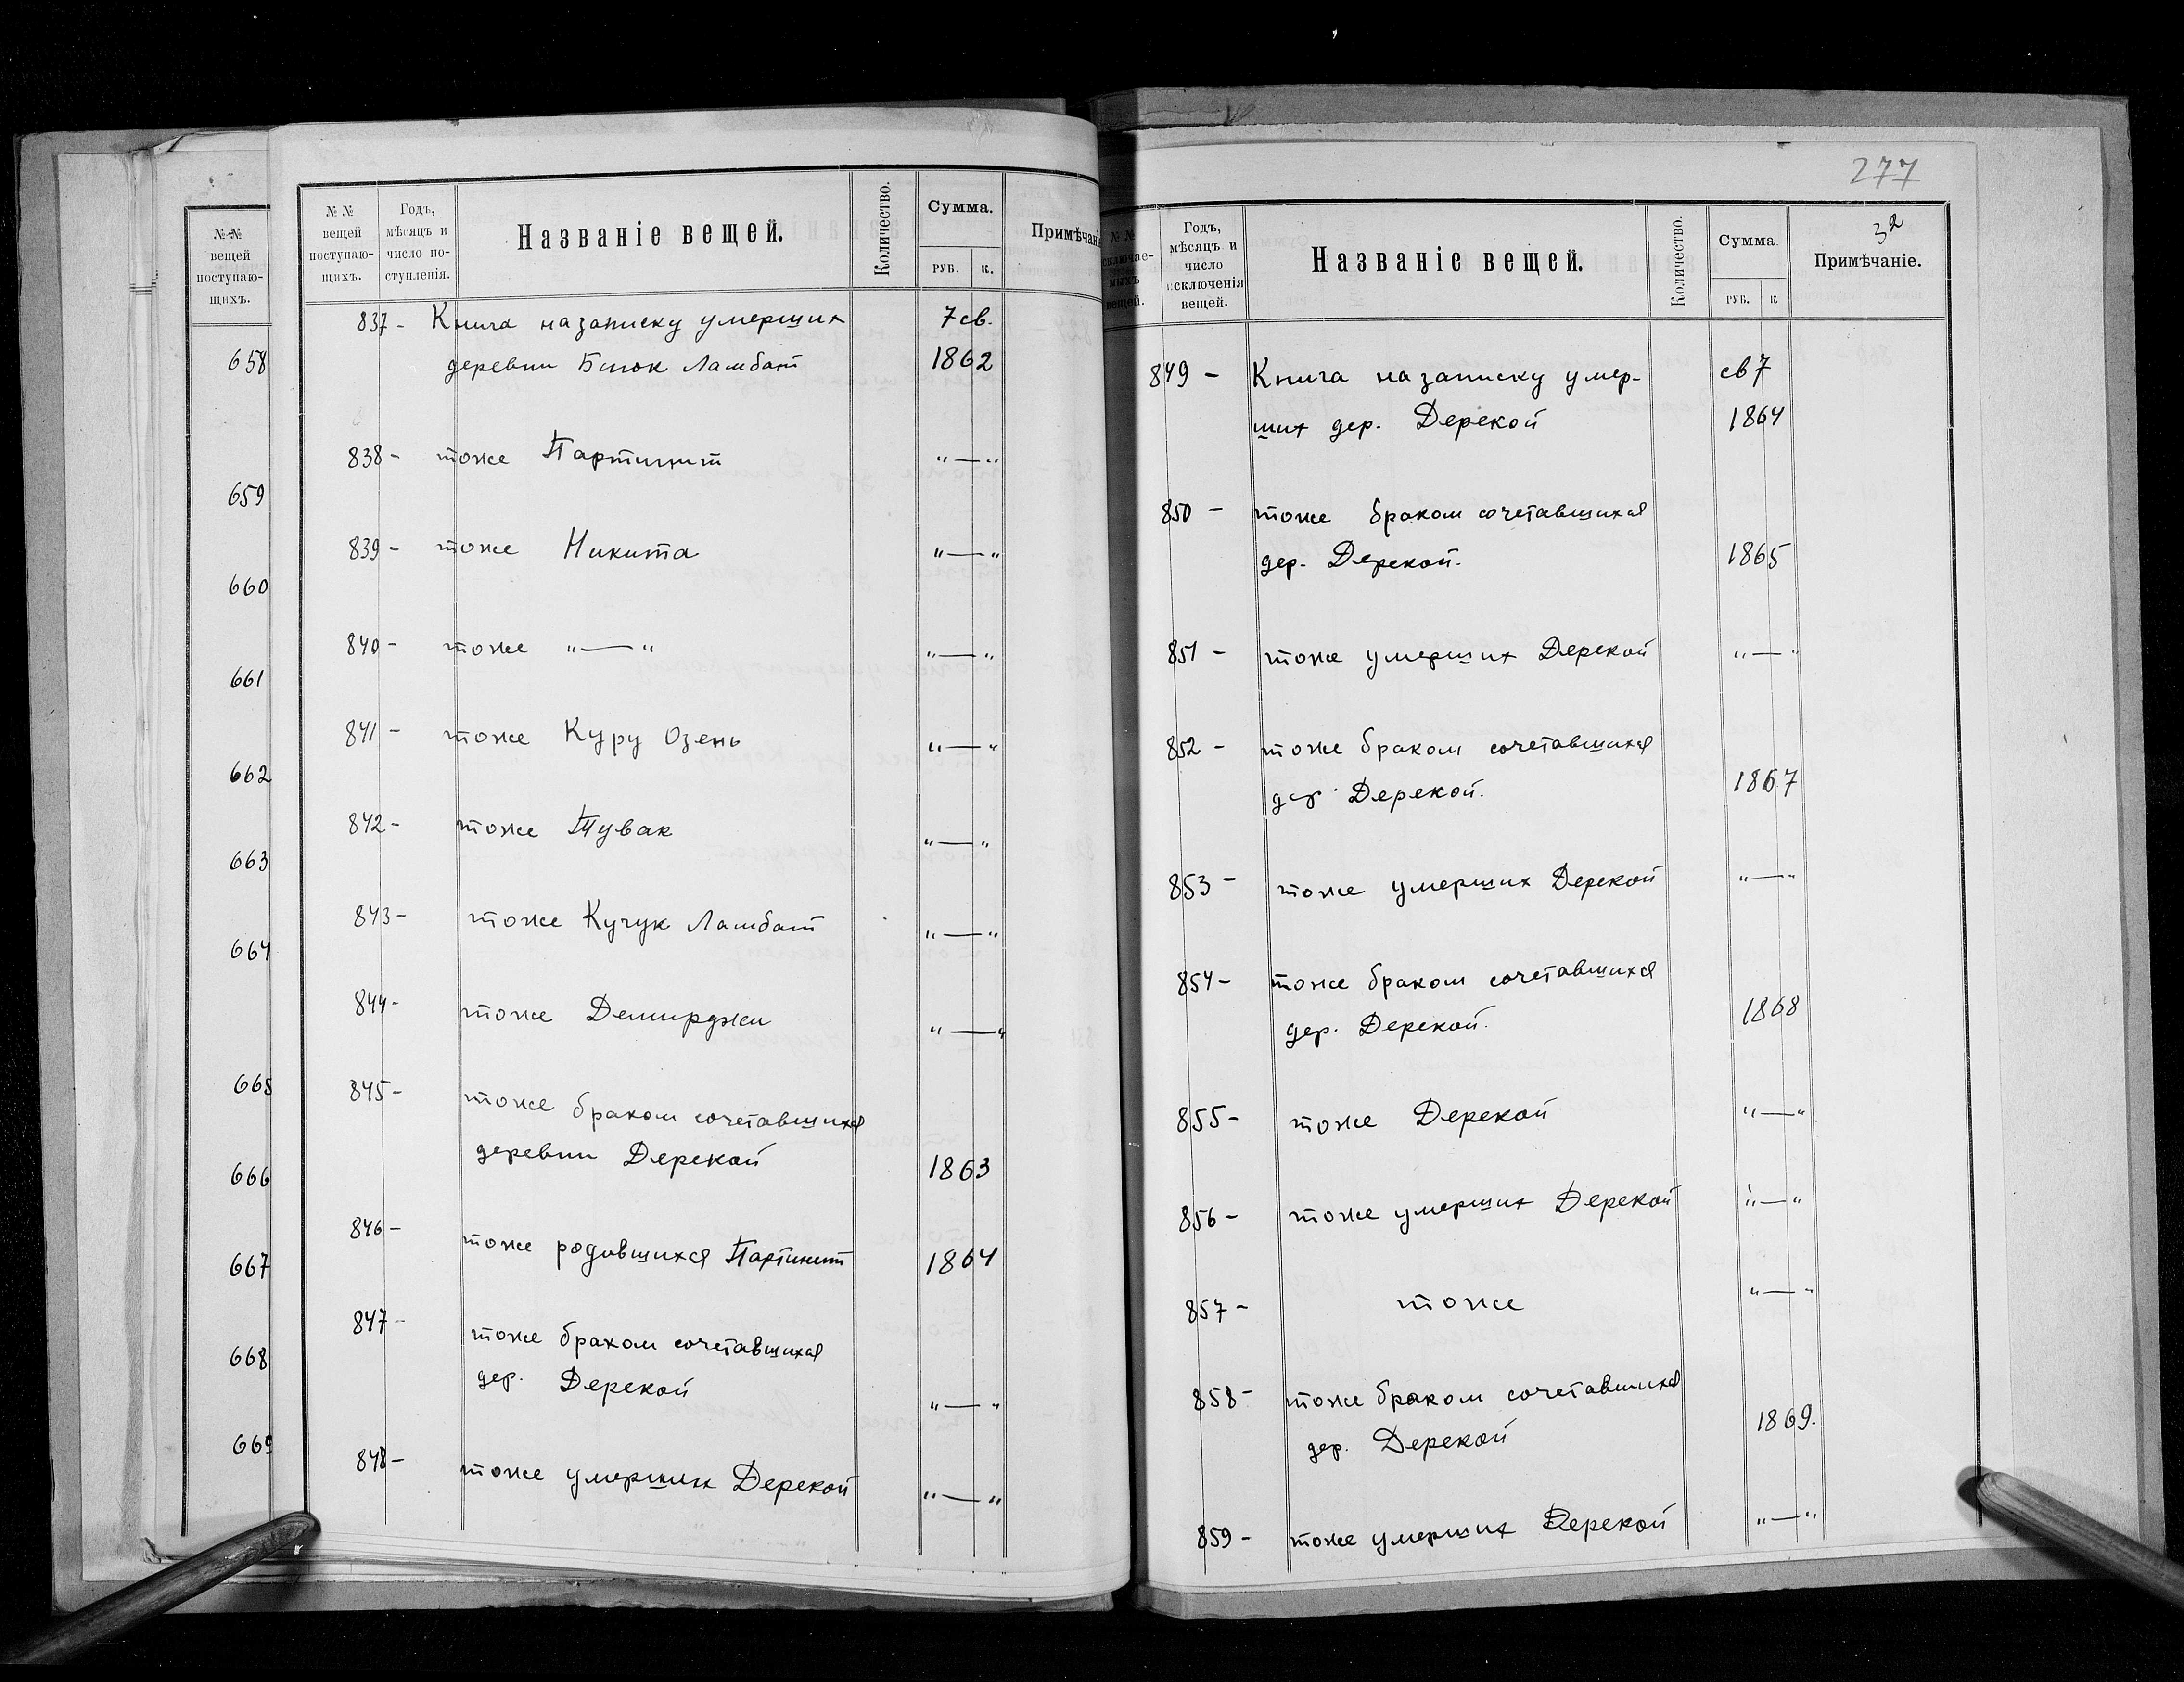 №№
вещей
поступаю-
щихъ.
658
659
660
661
662
663
664
665
666
667
668
669
№ №
вещей
поступаю-
щихъ.
Годъ,
мѣсяцъ и
число по-
ступленія.
Названіе вещей.
Количество.
Сумма.
РУБ. К.
Примѣчані
837 - Книга на записку умерших 7 св.
деревни Биюк Ламбат 1862
838 - тоже Партинит "—"
839 - тоже Никита "—"
840 - тоже "—" "—"
841 - тоже Куру Озень "—"
842 - тоже Тувак "—"
843 - тоже Кучук Ламбат "—"
844 - тоже Демирджи "—"
845 - тоже браком сочетавшихся
деревни Дерекой 1863
846 - тоже родившихся Партинит 1864
847 - тоже браком сочетавшихся
дер. Дерекой "—"
848 - тоже умерших Дерекой "—"
277
32
№ №
сключае-
мыхъ
вещей.
Годъ,
мѣсяцъ и
число
исключенія
вещей.
Названіе вещей.
Количество.
Сумма.
РУБ. К
Примѣчаніе.
849 - Книга на записку умер- св 7
ших дер. Дерекой 1864
850 - тоже браком сочетавшихся
дер. Дерекой. 1865
851 - тоже умерших Дерекой "—"
852 - тоже браком сочетавшихся
дер. Дерекой. 1867
853 - тоже умерших Дерекой "—"
854 - тоже браком сочетавшихся
дер. Дерекой. 1868
855 - тоже Дерекой "—"
856 - тоже умерших Дерекой "—"
857 - тоже "—"
858 - тоже браком сочетавшихся
дер. Дерекой 1869.
859 - тоже умерших Дерекой "—"